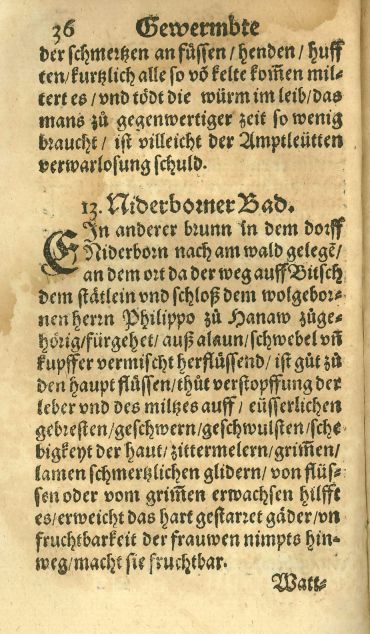 36 Gewermbte
der schmertzen an füssen / henden / huff
ten/kurtzlich alle so võ kelte kom̃en mil-
tert es / vnd tödt die würm im leib/das
mans zů gegenwertiger zeit so wenig
braucht / ist villeicht der Amptleütten
verwarlosung schuld.
13. Niderborner Bad.
EIn anderer brunn in dem dorff
Niderborn nach am wald gelegẽ/
an dem ort da der weg auff Bitsch
dem stätlein vnd schloß dem wolgebor-
nen herrn Philippo zů Hanaw zůge-
hörig/fürgehet/ auß alaun/schwebel vñ
kupffer vermischt herflüssend/ ist gůt zů
den haupt flüssen/thůt verstopffung der
leber vnd des miltzes auff/ eüsserlichen
gebresten/geschwern/geschwulsten/sche-
bigkeyt der haut/zittermelern/grim̃en/
lamen schmertzlichen glidern/von flüs-
sen oder vom grim̃en erwachsen hilfft
es/erweicht das hart gestarret gäder/vn
fruchtbarkeit der frauwen nimpts hin-
weg/macht sie fruchtbar.
Watt-